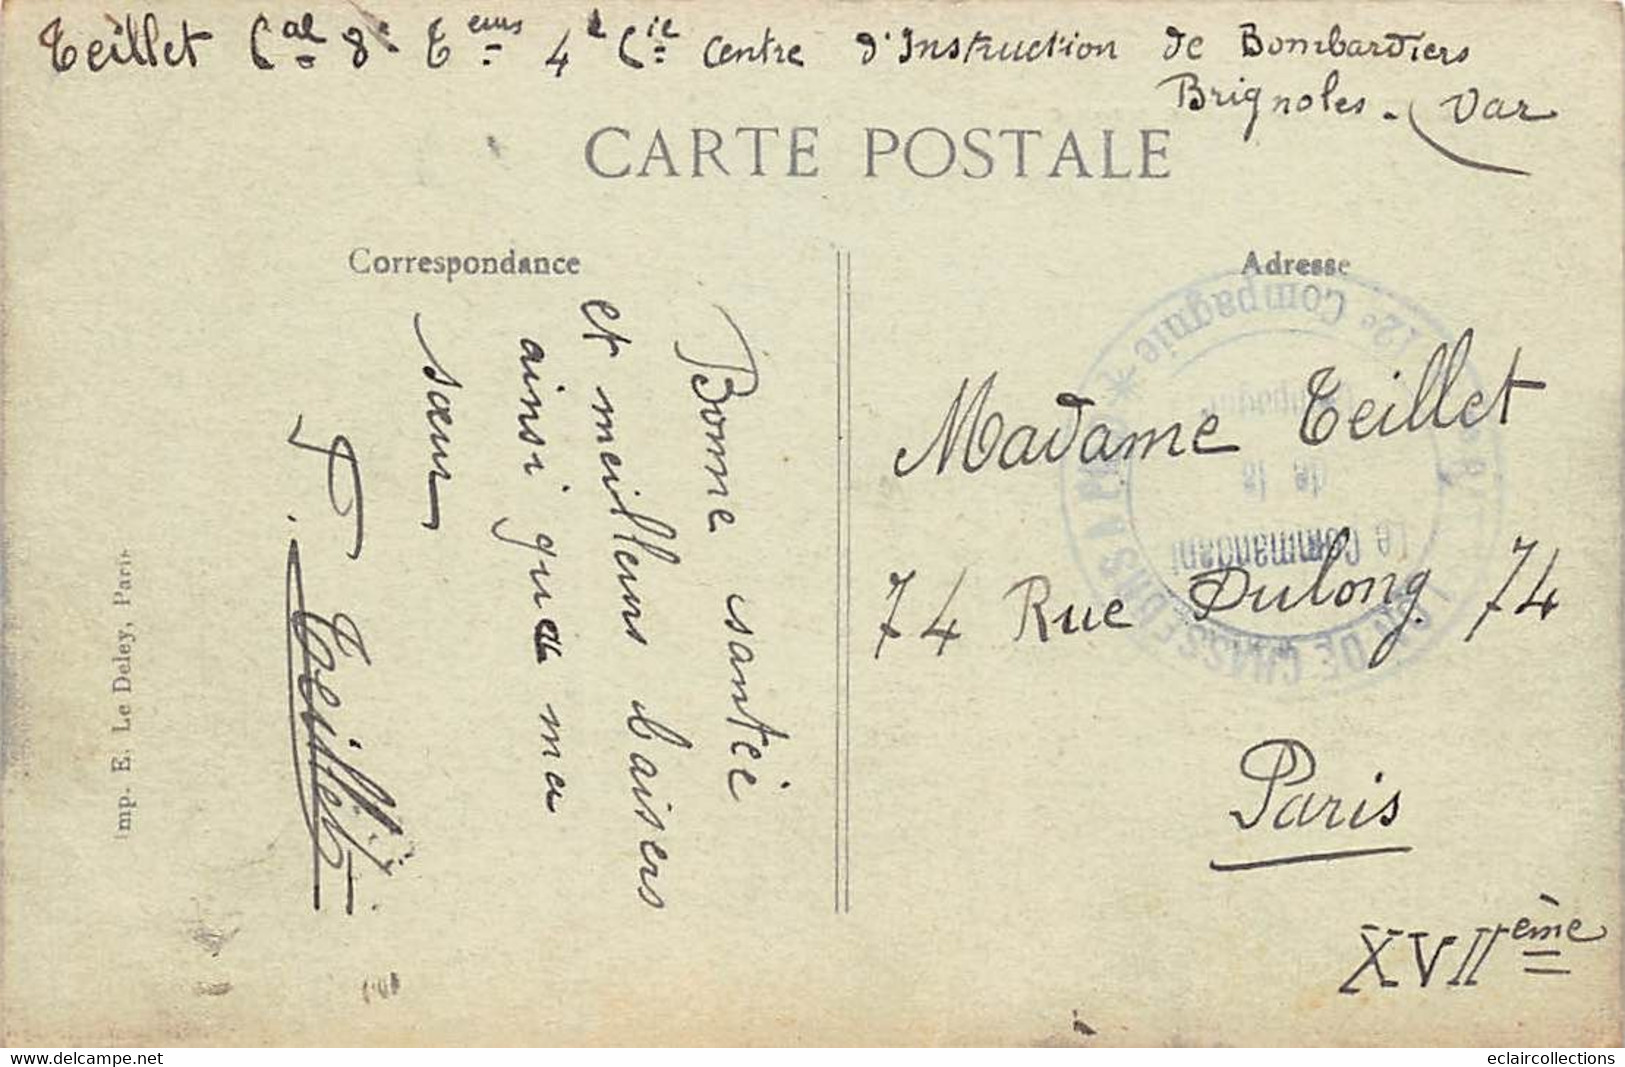 Teillet Cal 8e Teurs 4e Cie Centre d'Instruction de Bombardiers
Brignoles. Var
CARTE POSTALE
Correspondance
Adresse
Bonne santée
et meilleurs baisers
ainsi qu'a ma
sœur
P. Teillet
Imp. E. Le Deley, Paris
Madame Teillet
74 Rue Dulong 74
Paris
XVIIème
12e Compagnie *
Le Commandant
de la
Compagnie
DE CHASSEURS A PIED
eclaircollections
www.delcampe.net